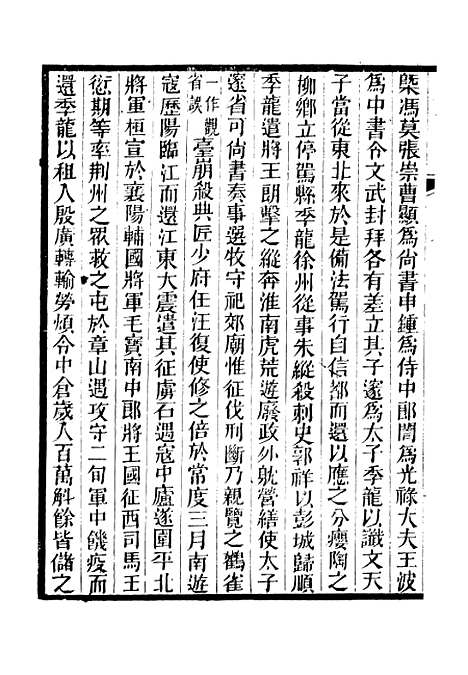 㮣馮莫張崇曹顯為尚書申鍾為侍中郎闓為光祿大夫王波
為中書令文武封拜各有差立其子邃為太子季龍以讖文天
子當從東北來於是備法駕行自信都而還以應之分癭陶之
柳鄉立停駕縣季龍徐州從事朱縱殺刺史郭祥以彭城歸順
季龍遣將王朗擊之縱奔淮南虎荒遊廢政外躭營繕使太子
邃省可尚書奏事選牧守祀郊廟惟征伐刑斷乃親覽之鸛雀
一作觀省誤臺崩殺典匠少府任汪復使修之倍於常度三月南遊
寇歷陽臨江而還江東大震遣其征虜石遇寇中廬遂圍平北
將軍桓宣於襄陽輔國將軍毛寶南中郎將王國征西司馬王
愆期等率荆州之眾救之屯於章山遇攻守二旬軍中饑疫而
還季龍以租入殷廣轉輸勞煩令中倉歲入百萬斛餘皆儲之